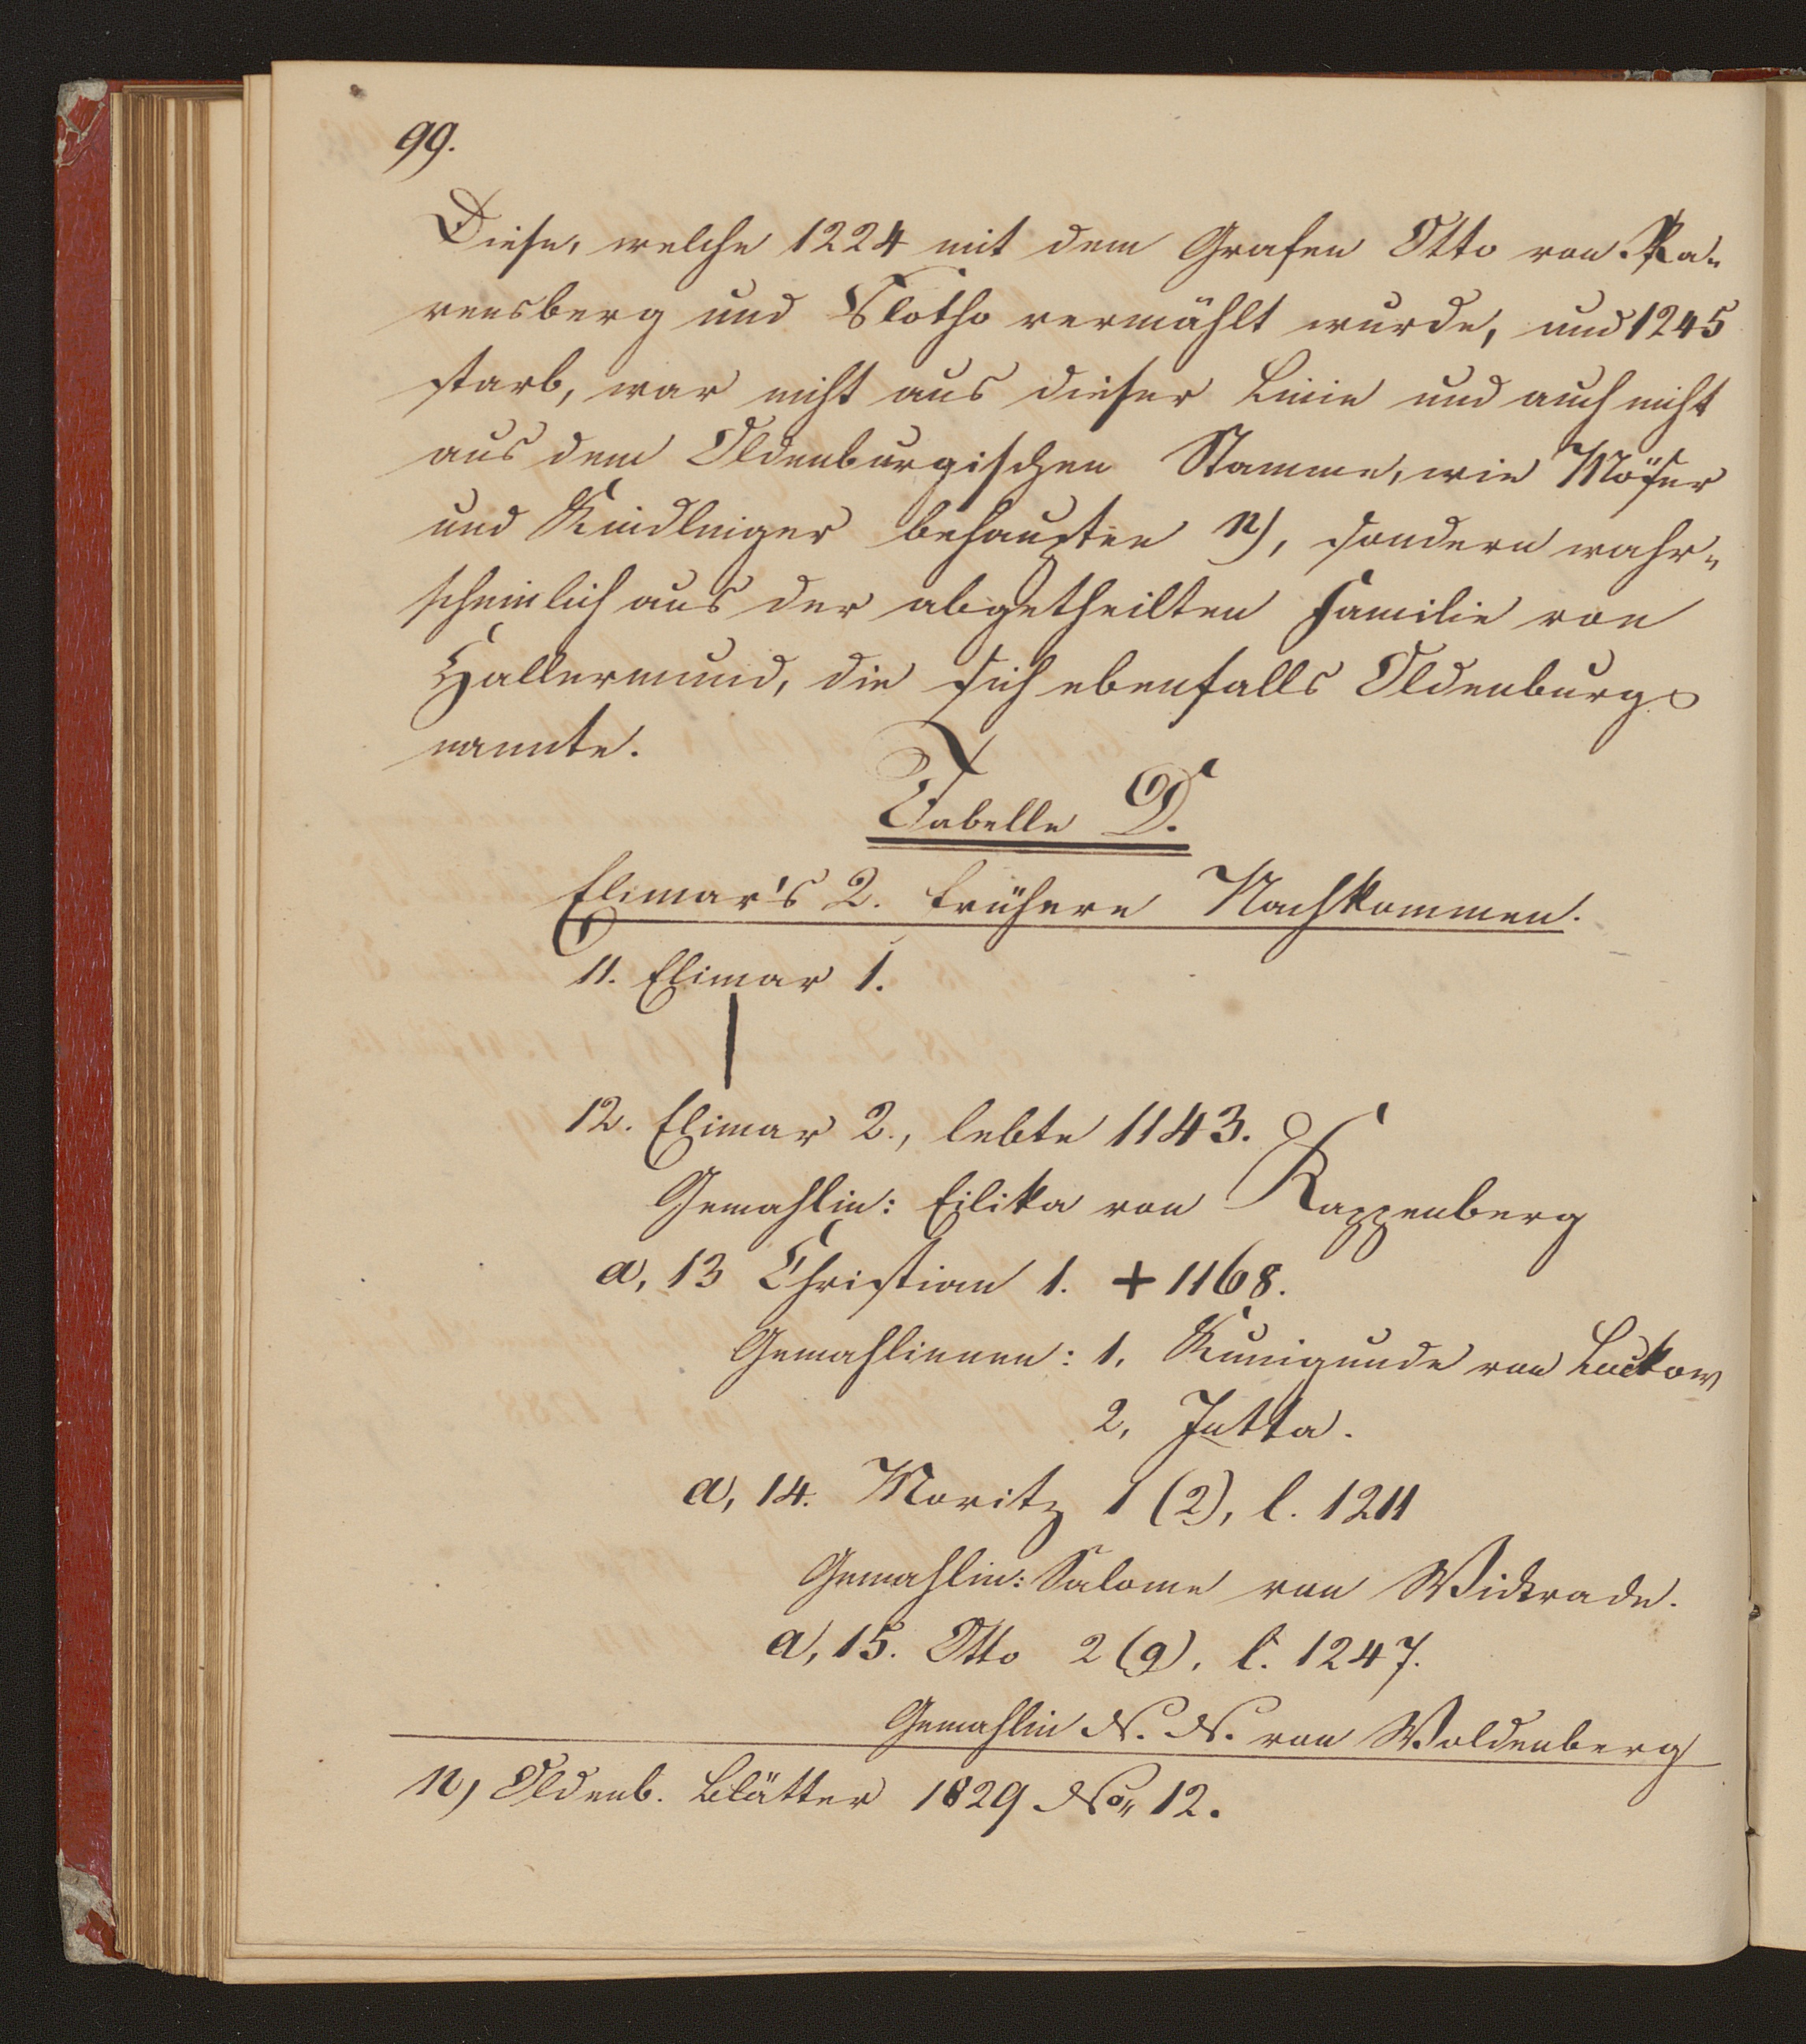 99.
Diese, welche 1224 mit dem Grafen Otto von Ra-
vensberg und Vlotho vermählt wurde, und 1245
starb, war nicht aus dieser Linie und auch nicht
aus dem Oldenburgischen Stamme, wie Möser
und Kindlinger behaupten n), sondern wahr-
scheinlich aus der abgetheilten Familie von
Hallermund, die sich ebenfalls Oldenburg
nannte.
Tabelle D.
Elimar's 2. frühere Nachkommen.
11. Elimar 1.
12. Elimar 2., lebte 1143.
Gemahlin: Eilika von Kappenberg
a, 13 Christian 1. + 1168.
Gemahlinnen: 1, Kunigunde von Luckow
2, Jutta.
a, 14. Moritz 1 (2), l. 1211
Gemahlin: Salome von Wickrade.
a, 15. Otto 2 (9), l. 1247.
Gemahlin N. N. von Woldenberg
n) Oldenb. Blätter 1829 No. 12.